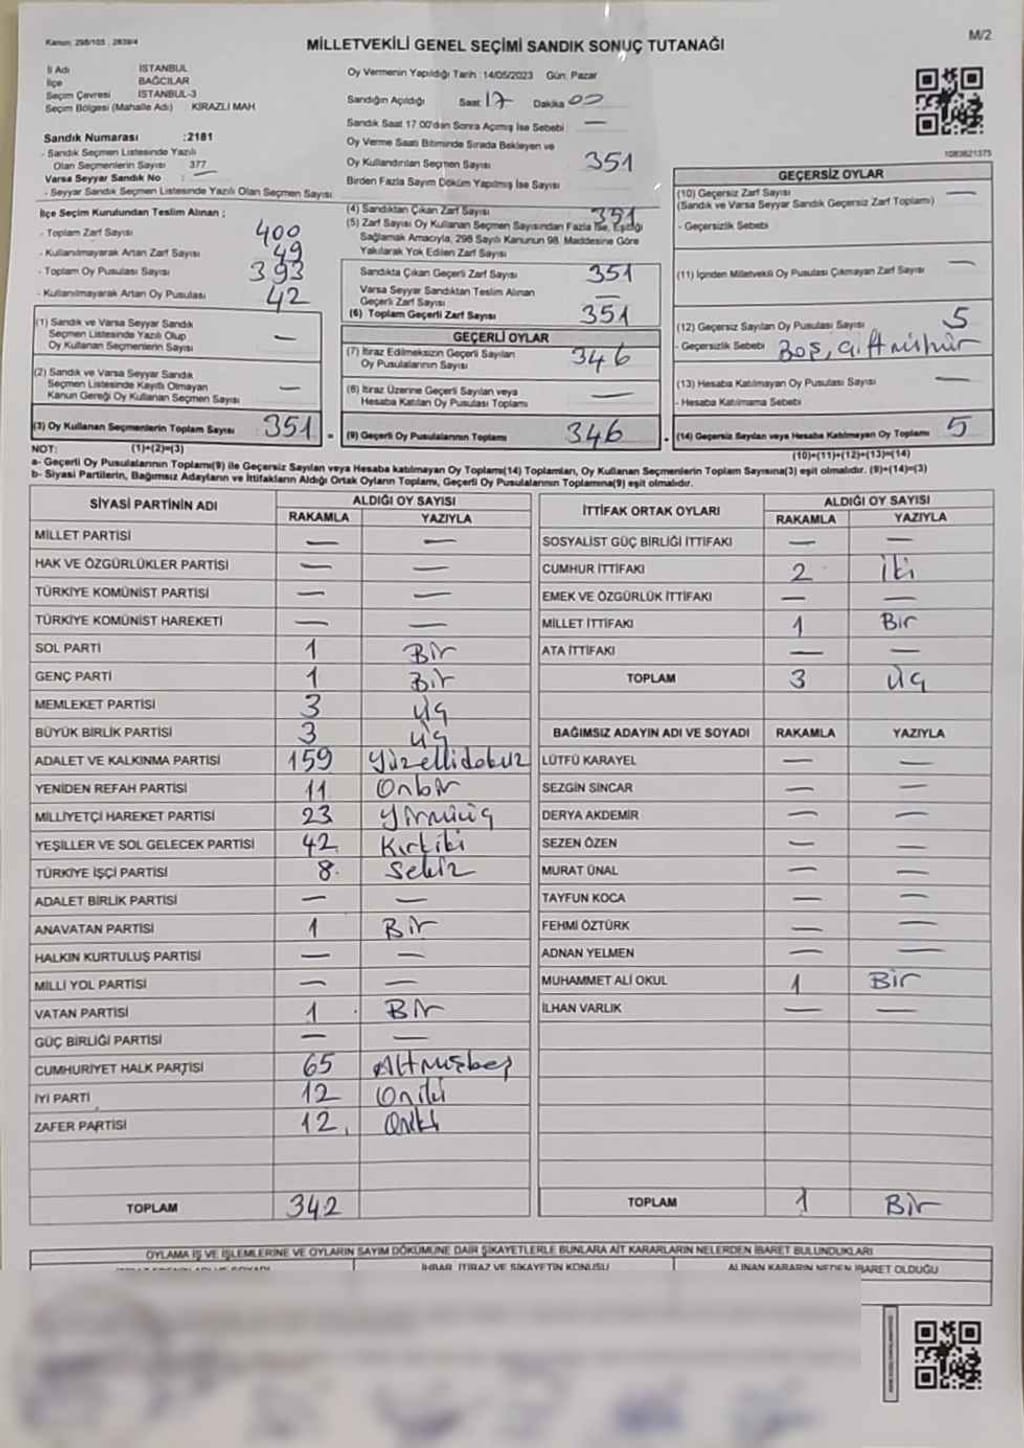 Kanun: 298/105 , 2839/4
MİLLETVEKİLİ GENEL SEÇİMİ SANDIK SONUÇ TUTANAĞI
M/2
İl Adı İSTANBUL
İlçe BAĞCILAR
Seçim Çevresi İSTANBUL-3
Seçim Bölgesi (Mahalle Adı) KİRAZLI MAH
Sandık Numarası :2181
- Sandık Seçmen Listesinde Yazılı
Olan Seçmenlerin Sayısı 377
Varsa Seyyar Sandık No : —
- Seyyar Sandık Seçmen Listesinde Yazılı Olan Seçmen Sayısı
İlçe Seçim Kurulundan Teslim Alınan ;
- Toplam Zarf Sayısı 400
- Kullanılmayarak Artan Zarf Sayısı 49
- Toplam Oy Pusulası Sayısı 393
- Kullanılmayarak Artan Oy Pusulası 42
(1) Sandık ve Varsa Seyyar Sandık
Seçmen Listesinde Yazılı Olup
Oy Kullanan Seçmenlerin Sayısı —
(2) Sandık ve Varsa Seyyar Sandık
Seçmen Listesinde Kayıtlı Olmayan
Kanun Gereği Oy Kullanan Seçmen Sayısı —
(3) Oy Kullanan Seçmenlerin Toplam Sayısı 351
(1)+(2)=(3)
Oy Vermenin Yapıldığı Tarih :14/05/2023 Gün: Pazar
Sandığın Açıldığı Saat 17 Dakika 00
Sandık Saat 17:00'dan Sonra Açımış İse Sebebi : —
Oy Verme Saati Bitiminde Sırada Bekleyen ve
Oy Kullandırılan Seçmen Sayısı 351
Birden Fazla Sayım Döküm Yapılmış İse Sayısı
(4) Sandıktan Çıkan Zarf Sayısı 351
(5) Zarf Sayısı Oy Kullanan Seçmen Sayısından Fazla İse, Eşitliği
Sağlamak Amacıyla, 298 Sayılı Kanunun 98. Maddesine Göre
Yakılarak Yok Edilen Zarf Sayısı
Sandıkta Çıkan Geçerli Zarf Sayısı 351
Varsa Seyyar Sandıktan Teslim Alınan
Geçerli Zarf Sayısı —
(6) Toplam Geçerli Zarf Sayısı 351
GEÇERLİ OYLAR
(7) İtiraz Edilmeksizin Geçerli Sayılan
Oy Pusulalarının Sayısı 346
(8) İtiraz Üzerine Geçerli Sayılan veya
Hesaba Katılan Oy Pusulası Toplamı —
(9) Geçerli Oy Pusulalarının Toplamı 346
1083621375
GEÇERSİZ OYLAR
(10) Geçersiz Zarf Sayısı —
(Sandık ve Varsa Seyyar Sandık Geçersiz Zarf Toplamı)
- Geçersizlik Sebebi
(11) İçinden Milletvekili Oy Pusulası Çıkmayan Zarf Sayısı —
(12) Geçersiz Sayılan Oy Pusulası Sayısı 5
- Geçersizlik Sebebi Boş, çift mühür
(13) Hesaba Katılmayan Oy Pusulası Sayısı —
- Hesaba Katılmama Sebebi
(14) Geçersiz Sayılan veya Hesaba Katılmayan Oy Toplamı 5
(10)+(11)+(12)+(13)=(14)
NOT:
a- Geçerli Oy Pusulalarının Toplamı(9) ile Geçersiz Sayılan veya Hesaba katılmayan Oy Toplamı(14) Toplamları, Oy Kullanan Seçmenlerin Toplam Sayısına(3) eşit olmalıdır. (9)+(14)=(3)
b- Siyasi Partilerin, Bağımsız Adayların ve İttifakların Aldığı Ortak Oyların Toplamı, Geçerli Oy Pusulalarının Toplamına(9) eşit olmalıdır.
SİYASİ PARTİNİN ADI ALDIĞI OY SAYISI
RAKAMLA YAZIYLA
MİLLET PARTİSİ — —
HAK VE ÖZGÜRLÜKLER PARTİSİ — —
TÜRKİYE KOMÜNİST PARTİSİ — —
TÜRKİYE KOMÜNİST HAREKETİ — —
SOL PARTİ 1 Bir
GENÇ PARTİ 1 Bir
MEMLEKET PARTİSİ 3 üç
BÜYÜK BİRLİK PARTİSİ 3 üç
ADALET VE KALKINMA PARTİSİ 159 Yüzellidokuz
YENİDEN REFAH PARTİSİ 11 Onbir
MİLLİYETÇİ HAREKET PARTİSİ 23 Yirmiüç
YEŞİLLER VE SOL GELECEK PARTİSİ 42 Kırkiki
TÜRKİYE İŞÇİ PARTİSİ 8 Sekiz
ADALET BİRLİK PARTİSİ — —
ANAVATAN PARTİSİ 1 Bir
HALKIN KURTULUŞ PARTİSİ — —
MİLLİ YOL PARTİSİ — —
VATAN PARTİSİ 1 Bir
GÜÇ BİRLİĞİ PARTİSİ — —
CUMHURİYET HALK PARTİSİ 65 Altmışbeş
İYİ PARTİ 12 Oniki
ZAFER PARTİSİ 12 Oniki
TOPLAM 342
İTTİFAK ORTAK OYLARI ALDIĞI OY SAYISI
RAKAMLA YAZIYLA
SOSYALİST GÜÇ BİRLİĞİ İTTİFAKI — —
CUMHUR İTTİFAKI 2 İki
EMEK VE ÖZGÜRLÜK İTTİFAKI — —
MİLLET İTTİFAKI 1 Bir
ATA İTTİFAKI — —
TOPLAM 3 üç
BAĞIMSIZ ADAYIN ADI VE SOYADI RAKAMLA YAZIYLA
LÜTFÜ KARAYEL — —
SEZGİN SİNCAR — —
DERYA AKDEMİR — —
SEZEN ÖZEN — —
MURAT ÜNAL — —
TAYFUN KOCA — —
FEHMİ ÖZTÜRK — —
ADNAN YELMEN — —
MUHAMMET ALİ OKUL 1 Bir
İLHAN VARLIK — —
TOPLAM 1 Bir
OYLAMA İŞ VE İŞLEMLERİNE VE OYLARIN SAYIM DÖKÜMÜNE DAİR ŞİKAYETLERLE BUNLARA AİT KARARLARIN NELERDEN İBARET BULUNDUKLARI
İHBAR, İTİRAZ VE ŞİKAYETİN KONUSU
ALINAN KARARIN NEDEN İBARET OLDUĞU